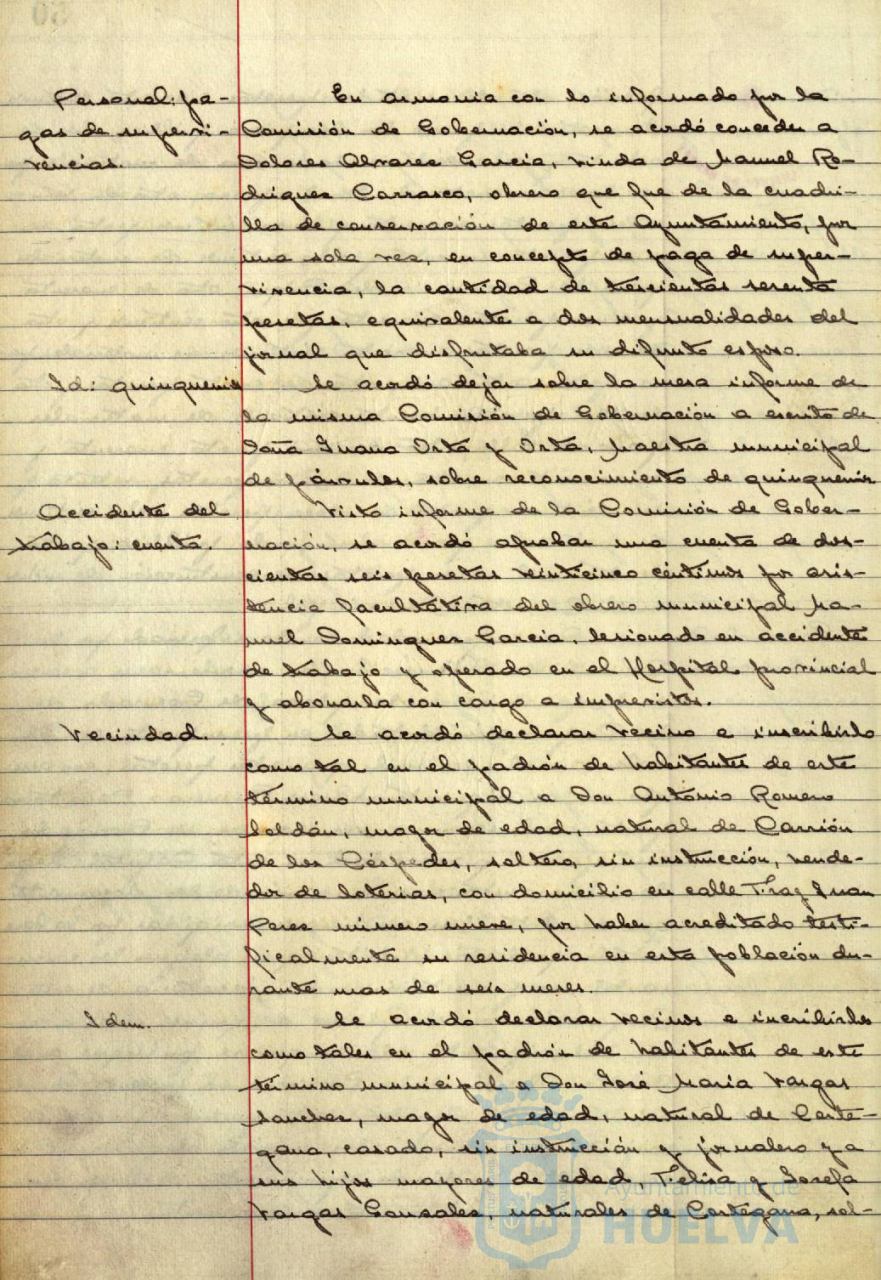 Personal: pa-
gas de supervi-
vencias.
En armonia con lo informado por la
Comisión de Gobernación, se acordó conceder a
Dolores Alvarez Garcia, viuda de Manuel Ro-
driguez Carrasco, obrero que fue de la cuadri-
lla de conservación de este Ayuntamiento, por
una sola vez, en concepto de paga de super-
vivencia, la cantidad de trescientas sesenta
pesetas, equivalente a dos mensualidades del
jornal que disfrutaba su difunto esposo.
Id: quinquenios
Se acordó dejar sobre la mesa informe de
la misma Comisión de Gobernación a escrito de
Doña Juana Orta y Orta, Maestra municipal
de párvulos, sobre reconocimiento de quinquenios
Accidente del
trabajo: cuenta.
Visto informe de la Comisión de Gober-
nación, se acordó aprobar una cuenta de dos-
cientas seis pesetas veinticinco céntimos por asis-
tencia facultativa del obrero municipal Ma-
nuel Dominguez Garcia, lesionado en accidente
de trabajo y operado en el Hospital provincial
y abonarla con cargo a imprevistos.
Vecindad.
Se acordó declarar vecino e inscribirlo
como tal en el padrón de habitantes de este
término municipal a Don Antonio Romero
Soldán, mayor de edad, natural de Carrión
de los Céspedes, soltero, sin instrucción, vende-
dor de loterias, con domicilio en calle Fray Juan
Perez número nueve, por haber acreditado testi-
ficalmente su residencia en esta población du-
rante mas de seis meses.
Idem.
Se acordó declarar vecinos e incribirlos
como tales en el padrón de habitantes de este
término municipal a Don José Maria Vargas
Sanchez, mayor de edad, natural de Corte-
gana, casado, sin instrucción y jornalero y a
sus hijos mayores de edad, Felisa y Josefa
Vargas Gonzalez, naturales de Cortegana, sol-
Ayuntamiento de
HUELVA